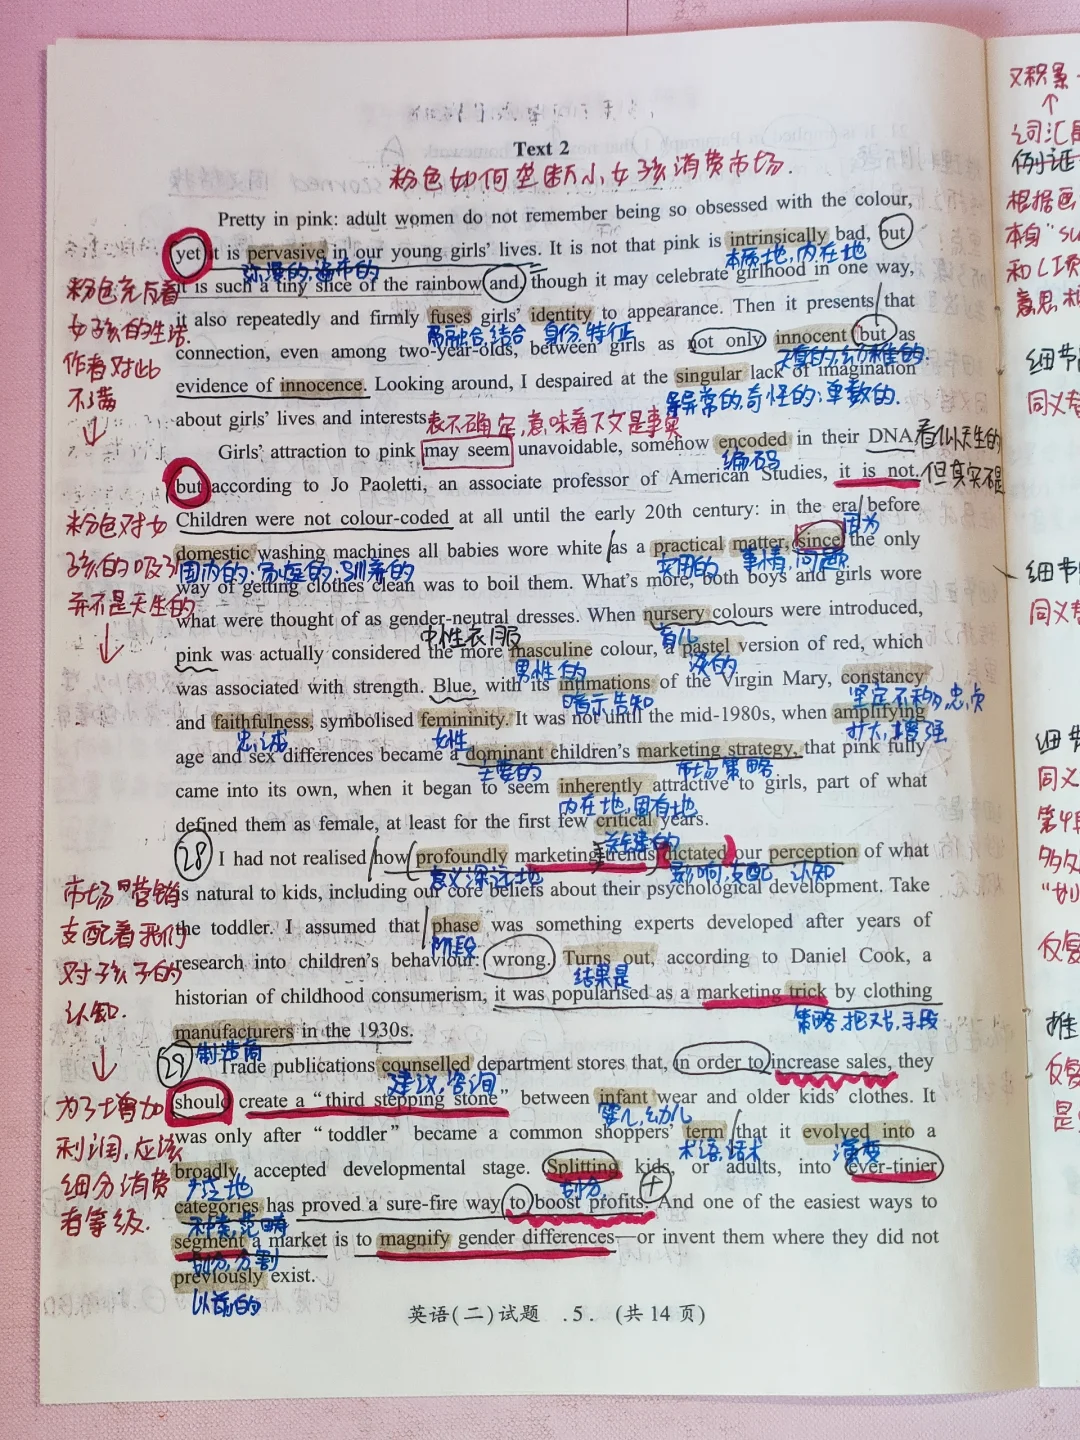 Text 2
粉色如何垄断小女孩消费市场.
Pretty in pink: adult women do not remember being so obsessed with the colour,
yet it is pervasive in our young girls' lives. It is not that pink is intrinsically bad, but
弥漫的,遍布的
本质地,内在地
it is such a tiny slice of the rainbow and, though it may celebrate girlhood in one way,
粉色充斥着
女孩的生活.
作者对此
不满
it also repeatedly and firmly fuses girls' identity to appearance. Then it presents that
融合,结合
身份,特征
connection, even among two-year-olds, between girls as not only innocent but as
天真的,幼稚的.
evidence of innocence. Looking around, I despaired at the singular lack of imagination
异常的,奇怪的;单数的.
about girls' lives and interests.
表不确定,意味着下文是事实
Girls' attraction to pink may seem unavoidable, somehow encoded in their DNA,
看似天生的
编码
but according to Jo Paoletti, an associate professor of American Studies, it is not.
但真实不是
Children were not colour-coded at all until the early 20th century: in the era before
因为
粉色对女
孩的吸引
并不是天生的
domestic washing machines all babies wore white as a practical matter, since the only
国内的;家庭的;驯养的
实用的
事情,问题
way of getting clothes clean was to boil them. What's more, both boys and girls wore
what were thought of as gender-neutral dresses. When nursery colours were introduced,
中性衣服
育儿
pink was actually considered the more masculine colour, a pastel version of red, which
男性的
淡的
was associated with strength. Blue, with its intimations of the Virgin Mary, constancy
暗示,告知
坚定不移,忠贞
and faithfulness, symbolised femininity. It was not until the mid-1980s, when amplifying
忠诚
女性
扩大,增强
age and sex differences became a dominant children's marketing strategy, that pink fully
主要的
市场策略
came into its own, when it began to seem inherently attractive to girls, part of what
内在地,固有地
defined them as female, at least for the first few critical years.
关键的
28
I had not realised how profoundly marketing trends dictated our perception of what
意义深远地
影响,支配
认知
is natural to kids, including our core beliefs about their psychological development. Take
市场营销
支配着我们
对孩子的
认知.
the toddler. I assumed that phase was something experts developed after years of
阶段
research into children's behaviour: wrong. Turns out, according to Daniel Cook, a
结果是
historian of childhood consumerism, it was popularised as a marketing trick by clothing
策略,把戏,手段
manufacturers in the 1930s.
制造商
29
Trade publications counselled department stores that, in order to increase sales, they
建议,咨询
should create a "third stepping stone" between infant wear and older kids' clothes. It
婴儿,幼儿
为了增加
利润,应该
细分消费
者等级.
was only after "toddler" became a common shoppers' term that it evolved into a
术语,话术
演变
broadly accepted developmental stage. Splitting kids, or adults, into ever-tinier
广泛地
划分
categories has proved a sure-fire way to boost profits. And one of the easiest ways to
种类,范畴
segment a market is to magnify gender differences—or invent them where they did not
划分,分割
previously exist.
以前的
英语(二)试题 .5. (共14页)
又积累
↑
词汇
例证
根据
本身
和C项
意思
细节
同义
细节
同义
细节
同义
第4段
多次
反复
推
反复
是